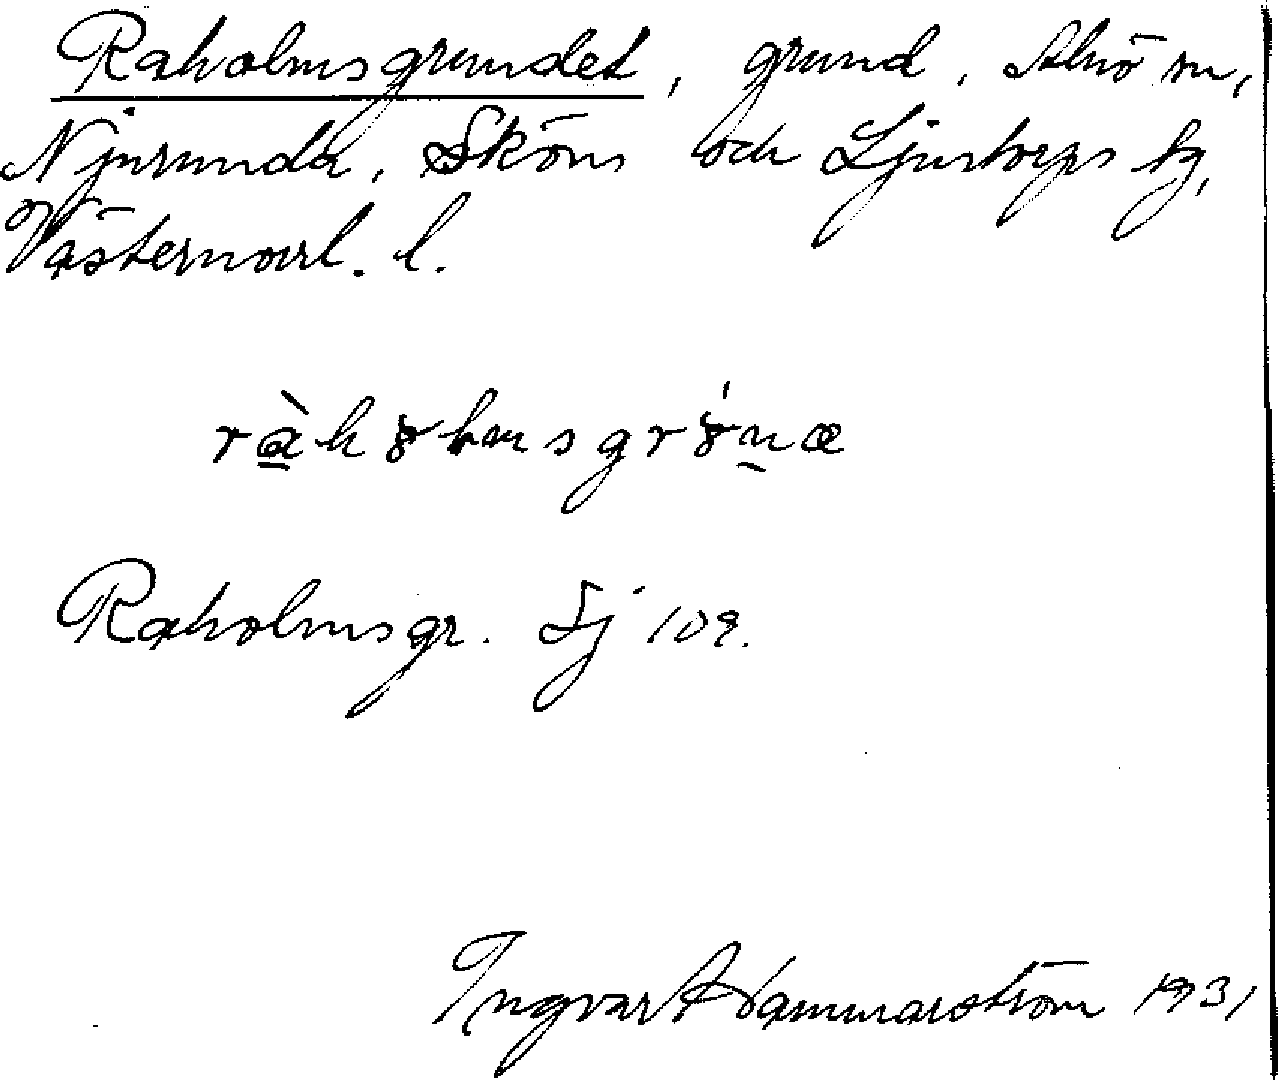 Raholmsgrundet, grund, Alnö sn,
Njurunda, Sköns och Ljustorps tg,
Västernorrl. l.
Raholmsgr. Sj 109.
Ingvar Hammarström 1931